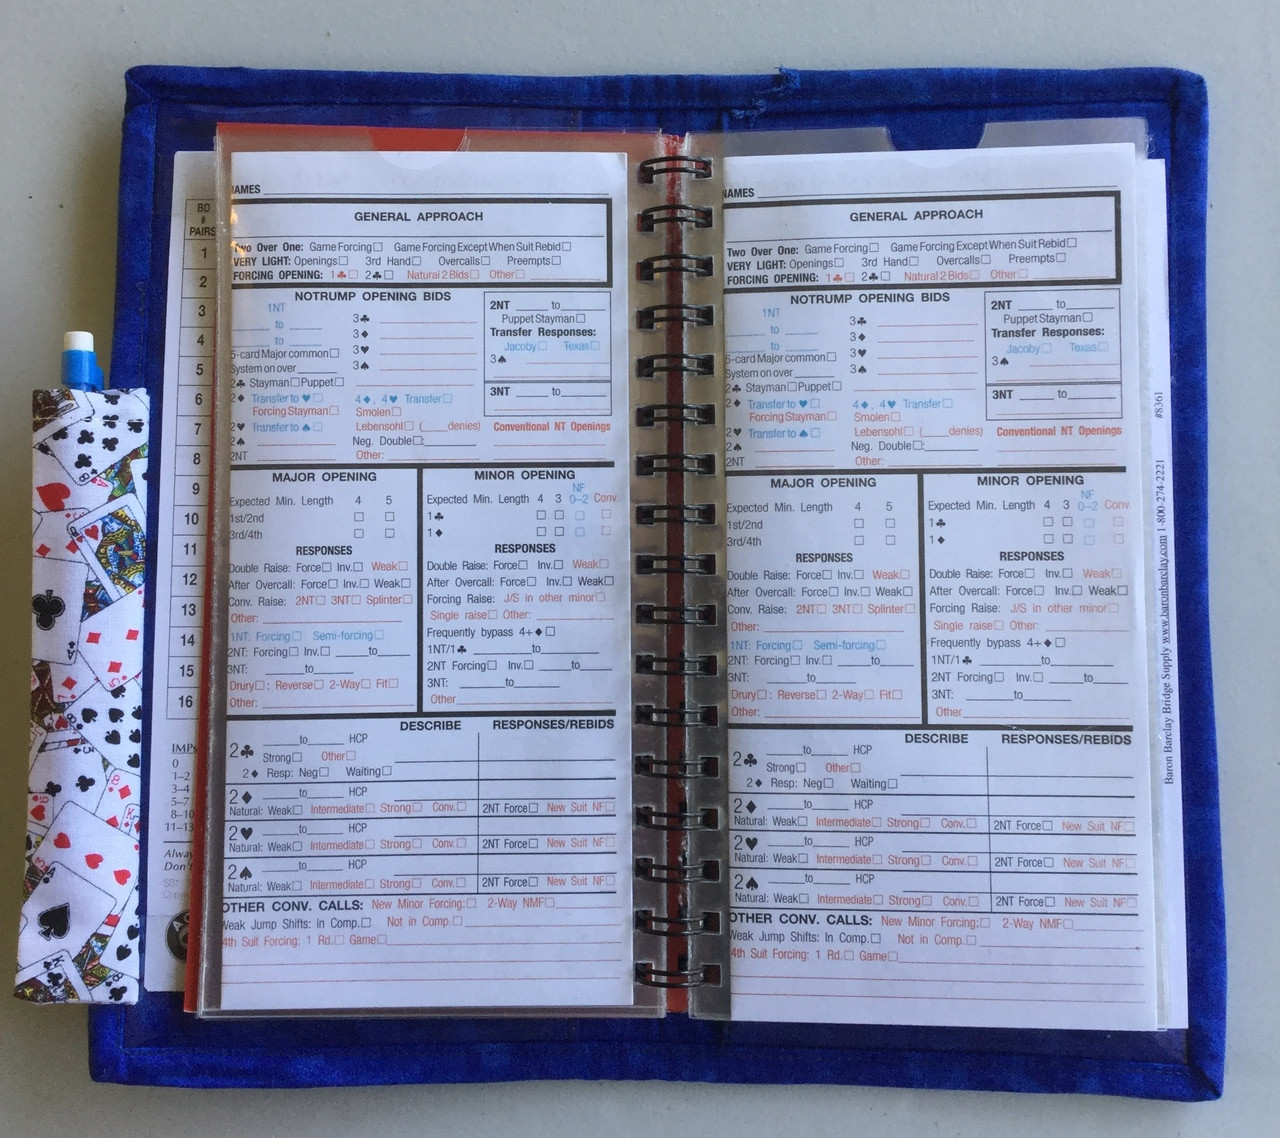 BD
#
PAIRS
1
2
3
4
5
6
7
8
9
10
11
12
13
14
15
16
IMPs
0
1–2
3–4
5–7
8–10
11–13
Alway
Don't
NAMES
GENERAL APPROACH
Two Over One: Game Forcing☐ Game Forcing Except When Suit Rebid☐
VERY LIGHT: Openings☐ 3rd Hand☐ Overcalls☐ Preempts☐
FORCING OPENING: 1♣☐ 2♣☐ Natural 2 Bids☐ Other☐
NOTRUMP OPENING BIDS
1NT
___ to ___
___ to ___
5-card Major common☐
System on over
2♣ Stayman☐ Puppet☐
2♦ Transfer to ♥☐
Forcing Stayman☐
2♥ Transfer to ♠☐
2♠
2NT
3♣
3♦
3♥
3♠
4♦, 4♥ Transfer☐
Smolen☐
Lebensohl☐ (___denies)
Neg. Double☐:
Other:
2NT ___to___
Puppet Stayman☐
Transfer Responses:
Jacoby☐ Texas☐
3♠
3NT ___ to___
Conventional NT Openings
MAJOR OPENING
Expected Min. Length 4 5
1st/2nd ☐ ☐
3rd/4th ☐ ☐
RESPONSES
Double Raise: Force☐ Inv.☐ Weak☐
After Overcall: Force☐ Inv.☐ Weak☐
Conv. Raise: 2NT☐ 3NT☐ Splinter☐
Other:
1NT: Forcing☐ Semi-forcing☐
2NT: Forcing☐ Inv.☐ ___to___
3NT: ___to___
Drury☐: Reverse☐ 2-Way☐ Fit☐
Other:
MINOR OPENING
NF
Expected Min. Length 4 3 0–2 Conv.
1♣ ☐ ☐ ☐ ☐
1♦ ☐ ☐ ☐ ☐
RESPONSES
Double Raise: Force☐ Inv.☐ Weak☐
After Overcall: Force☐ Inv.☐ Weak☐
Forcing Raise: J/S in other minor☐
Single raise☐ Other:
Frequently bypass 4+♦☐
1NT/1♣ ___to___
2NT Forcing☐ Inv.☐ ___to___
3NT: ___to___
Other
DESCRIBE RESPONSES/REBIDS
2♣ ___to___ HCP
Strong☐ Other☐
2♦ Resp: Neg☐ Waiting☐
2♦ ___to___ HCP
Natural: Weak☐ Intermediate☐ Strong☐ Conv.☐ 2NT Force☐ New Suit NF☐
2♥ ___to___ HCP
Natural: Weak☐ Intermediate☐ Strong☐ Conv.☐ 2NT Force☐ New Suit NF☐
2♠ ___to___ HCP
Natural: Weak☐ Intermediate☐ Strong☐ Conv.☐ 2NT Force☐ New Suit NF☐
OTHER CONV. CALLS: New Minor Forcing:☐ 2-Way NMF☐
Weak Jump Shifts: In Comp.☐ Not in Comp.☐
4th Suit Forcing: 1 Rd.☐ Game☐
NAMES
GENERAL APPROACH
Two Over One: Game Forcing☐ Game Forcing Except When Suit Rebid☐
VERY LIGHT: Openings☐ 3rd Hand☐ Overcalls☐ Preempts☐
FORCING OPENING: 1♣☐ 2♣☐ Natural 2 Bids☐ Other☐
NOTRUMP OPENING BIDS
1NT
___ to ___
___ to ___
5-card Major common☐
System on over
2♣ Stayman☐ Puppet☐
2♦ Transfer to ♥☐
Forcing Stayman☐
2♥ Transfer to ♠☐
2♠
2NT
3♣
3♦
3♥
3♠
4♦, 4♥ Transfer☐
Smolen☐
Lebensohl☐ (___denies)
Neg. Double☐:
Other:
2NT ___to___
Puppet Stayman☐
Transfer Responses:
Jacoby☐ Texas☐
3♠
3NT ___ to___
Conventional NT Openings
MAJOR OPENING
Expected Min. Length 4 5
1st/2nd ☐ ☐
3rd/4th ☐ ☐
RESPONSES
Double Raise: Force☐ Inv.☐ Weak☐
After Overcall: Force☐ Inv.☐ Weak☐
Conv. Raise: 2NT☐ 3NT☐ Splinter☐
Other:
1NT: Forcing☐ Semi-forcing☐
2NT: Forcing☐ Inv.☐ ___to___
3NT: ___to___
Drury☐: Reverse☐ 2-Way☐ Fit☐
Other:
MINOR OPENING
NF
Expected Min. Length 4 3 0–2 Conv
1♣ ☐ ☐ ☐ ☐
1♦ ☐ ☐ ☐ ☐
RESPONSES
Double Raise: Force☐ Inv.☐ Weak☐
After Overcall: Force☐ Inv.☐ Weak☐
Forcing Raise: J/S in other minor☐
Single raise☐ Other:
Frequently bypass 4+♦☐
1NT/1♣ ___to___
2NT Forcing☐ Inv.☐ ___to___
3NT: ___to___
Other
DESCRIBE RESPONSES/REBIDS
2♣ ___to___ HCP
Strong☐ Other☐
2♦ Resp: Neg☐ Waiting☐
2♦ ___to___ HCP
Natural: Weak☐ Intermediate☐ Strong☐ Conv.☐ 2NT Force☐ New Suit NF☐
2♥ ___to___ HCP
Natural: Weak☐ Intermediate☐ Strong☐ Conv.☐ 2NT Force☐ New Suit NF☐
2♠ ___to___ HCP
Natural: Weak☐ Intermediate☐ Strong☐ Conv.☐ 2NT Force☐ New Suit NF☐
OTHER CONV. CALLS: New Minor Forcing:☐ 2-Way NMF☐
Weak Jump Shifts: In Comp.☐ Not in Comp.☐
4th Suit Forcing: 1 Rd.☐ Game☐
Baron Barclay Bridge Supply www.baronbarclay.com 1-800-274-2221 #8361